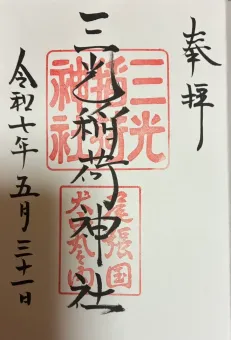 奉拝
三光稲荷神社
三光稲荷神社
尾張国犬山丸の内
令和七年五月三十一日